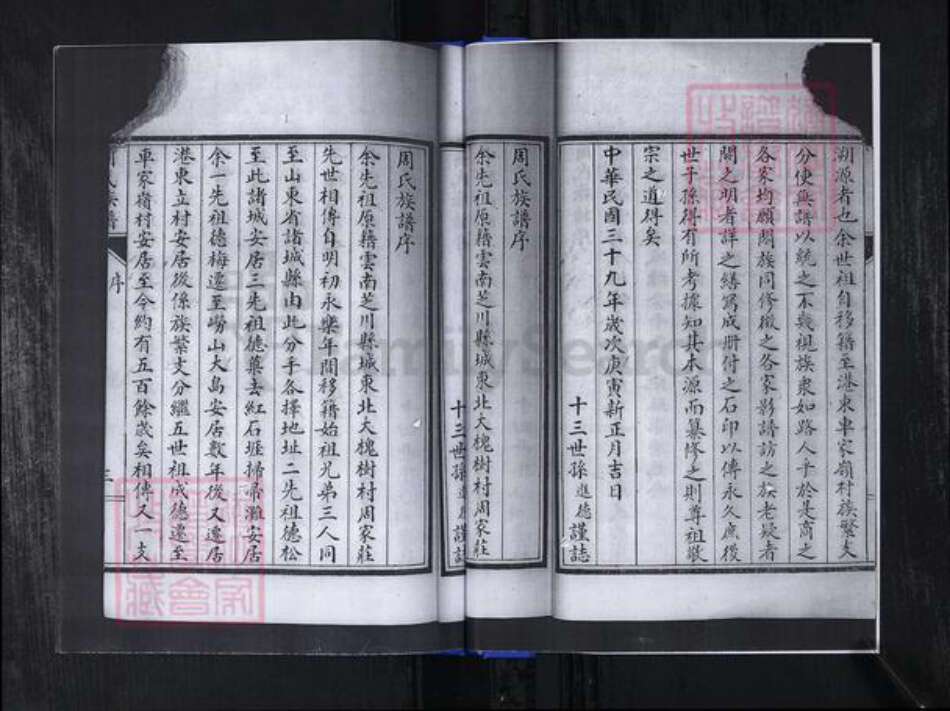 溯源者也余世祖自移籍至港東車家嶺村族繁支
分使無譜以統之不幾視族衆如路人乎於是商之
各家均願闔族同修徵之各家影譜訪之族老疑者
闕之明者詳之繕寫成册付之石印以傳永久庶後
世子孫得有所考據知其本源而纂修之則尊祖敬
宗之道得矣
中華民國三十九年歲次庚寅新正月吉日
十三世孫進德謹誌
周氏族譜序
余先祖原籍雲南芝川縣城東北大槐樹村周家莊
十三世孫進 謹誌
周氏族譜序
余先祖原籍雲南芝川縣城東北大槐樹村周家莊
先世相傳自明初永樂年間移籍始祖兄弟三人同
至山東省諸城縣由此分手各擇地址二先祖德松
至此諸城安居三先祖德葉去紅石堐掃帚灘安居
余一先祖德梅遷至嶗山大島安居數年後又遷居
港東立村安居後係族繁支分繼五世祖成德遷至
車家嶺村安居至今約有五百餘歲矣相傳又一支
氏族譜
序
三
FamilySearch